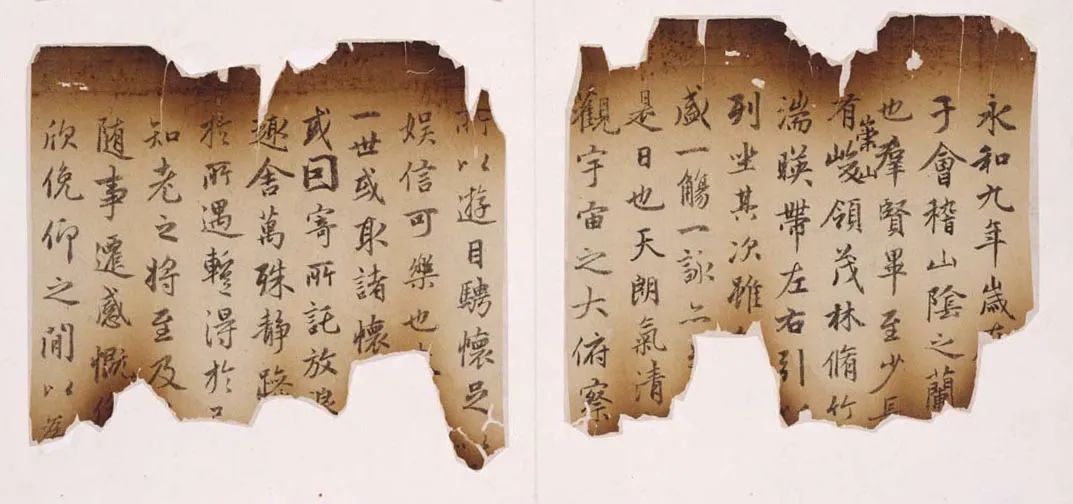 永和九年歲
于會稽山陰之蘭
也羣賢畢至少長
有崇山峻領茂林脩竹
湍暎帶左右引
列坐其次雖
盛一觴一詠亦
是日也天朗氣清
觀宇宙之大俯察
所以遊目騁懷足
娛信可樂也
一世或取諸懷
或因寄所託放浪
趣舍萬殊靜躁
於所遇蹔得於
知老之將至及
隨事遷感慨係
欣俛仰之閒以爲